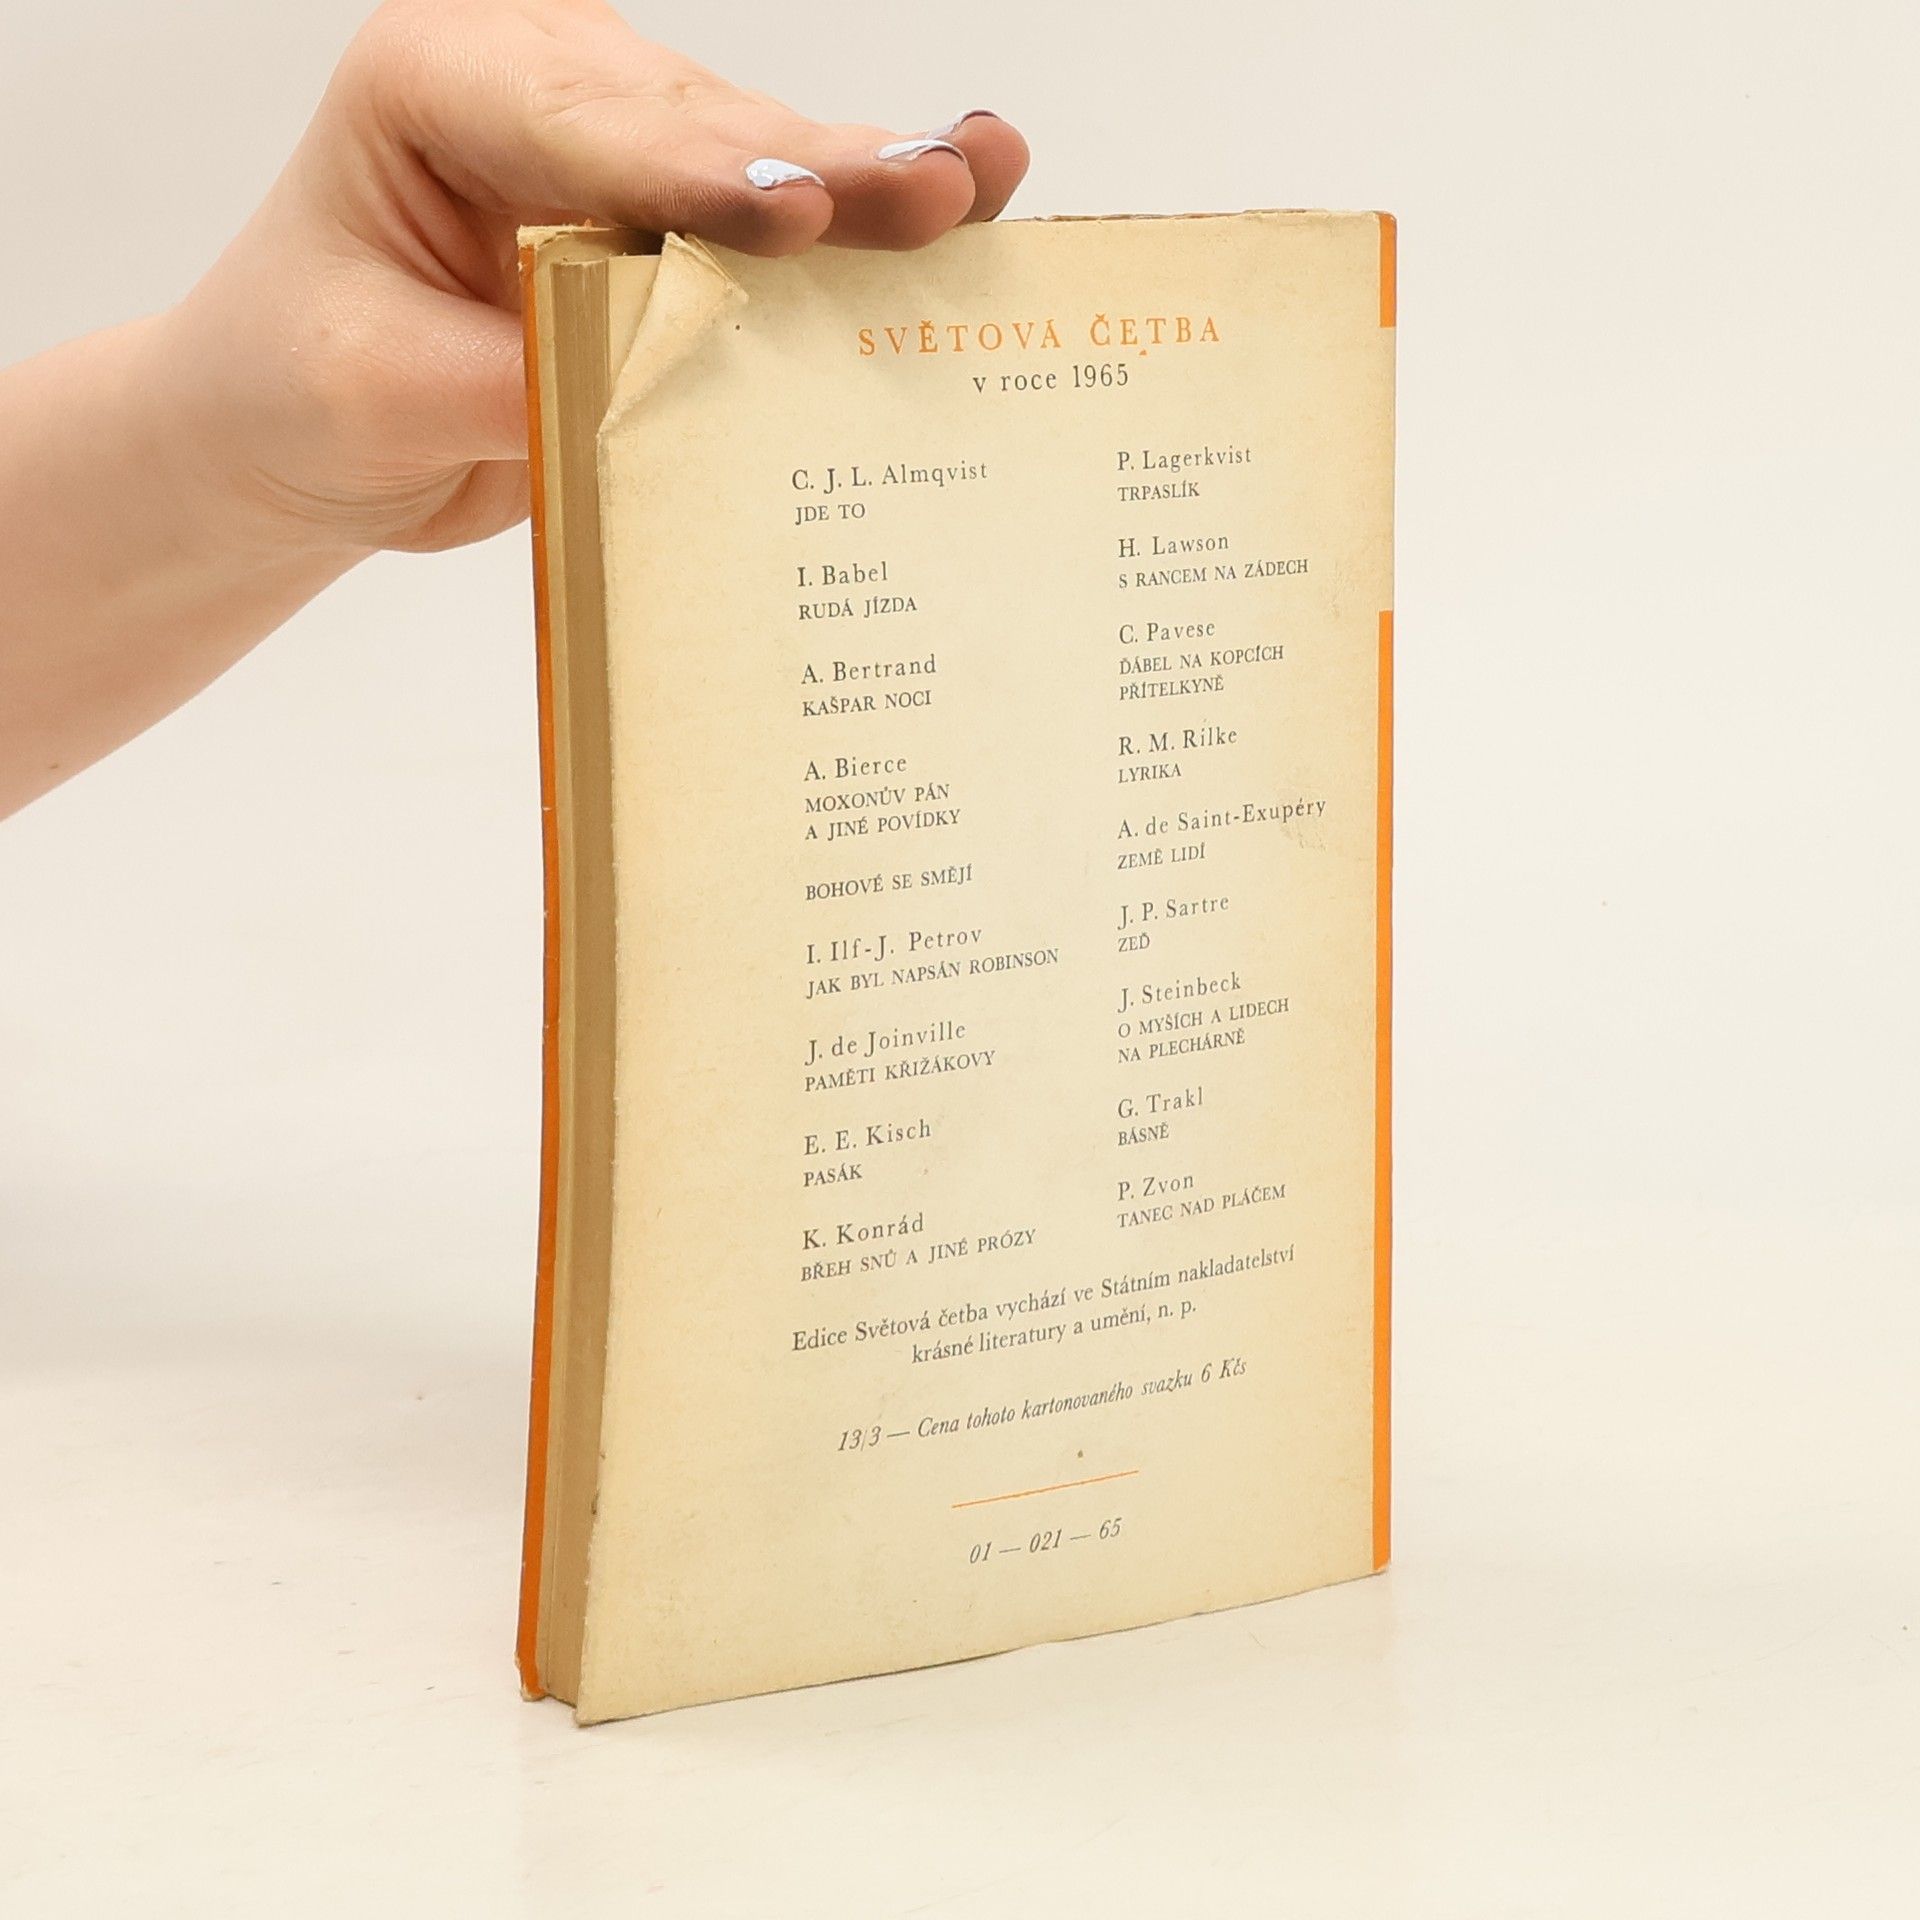 SVĚTOVÁ ČETBA
v roce 1965
C. J. L. Almqvist
JDE TO
I. Babel
RUDÁ JÍZDA
A. Bertrand
KAŠPAR NOCI
A. Bierce
MOXONŮV PÁN
A JINÉ POVÍDKY
BOHOVÉ SE SMĚJÍ
I. Ilf-J. Petrov
JAK BYL NAPSÁN ROBINSON
J. de Joinville
PAMĚTI KŘIŽÁKOVY
E. E. Kisch
PASÁK
K. Konrád
BŘEH SNŮ A JINÉ PRÓZY
P. Lagerkvist
TRPASLÍK
H. Lawson
S RANCEM NA ZÁDECH
C. Pavese
ĎÁBEL NA KOPCÍCH
PŘÍTELKYNĚ
R. M. Rilke
LYRIKA
A. de Saint-Exupéry
ZEMĚ LIDÍ
J. P. Sartre
ZEĎ
J. Steinbeck
O MYŠÍCH A LIDECH
NA PLECHÁRNĚ
G. Trakl
BÁSNĚ
P. Zvon
TANEC NAD PLÁČEM
Edice Světová četba vychází ve Státním nakladatelství
krásné literatury a umění, n. p.
13/3 — Cena tohoto kartonovaného svazku 6 Kčs
01 — 021 — 65